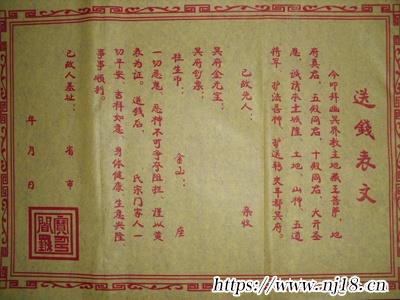 送錢表文
今叩拜幽冥界教主地藏王菩萨、地
府真君、五殿阎君、十殿阎君、大开圣
恩、誠請本土城隍、土地、山神、五道
将军、护法善神、护送钱史车部冥府。
已故先人： 亲收
冥府金元宝：
冥府钞票：
往生币： 金山： 座
一切恶鬼、恶神不可争夺阻拦、谨以黄
表为证。送钱后、 氏宗门家人一
切平安、吉祥如意、身体健康、生意兴隆
事事顺利。
已故人墓址： 省 市
年 月 日
https://www.nj18.cn